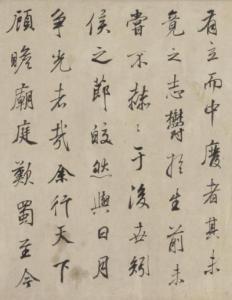 有立而中廢者其未
竟之志鬱於生前未
嘗不赫〻于後世矧
侯之節皎然與日月
爭光者哉余行天下
顧瞻廟庭歎蜀至今